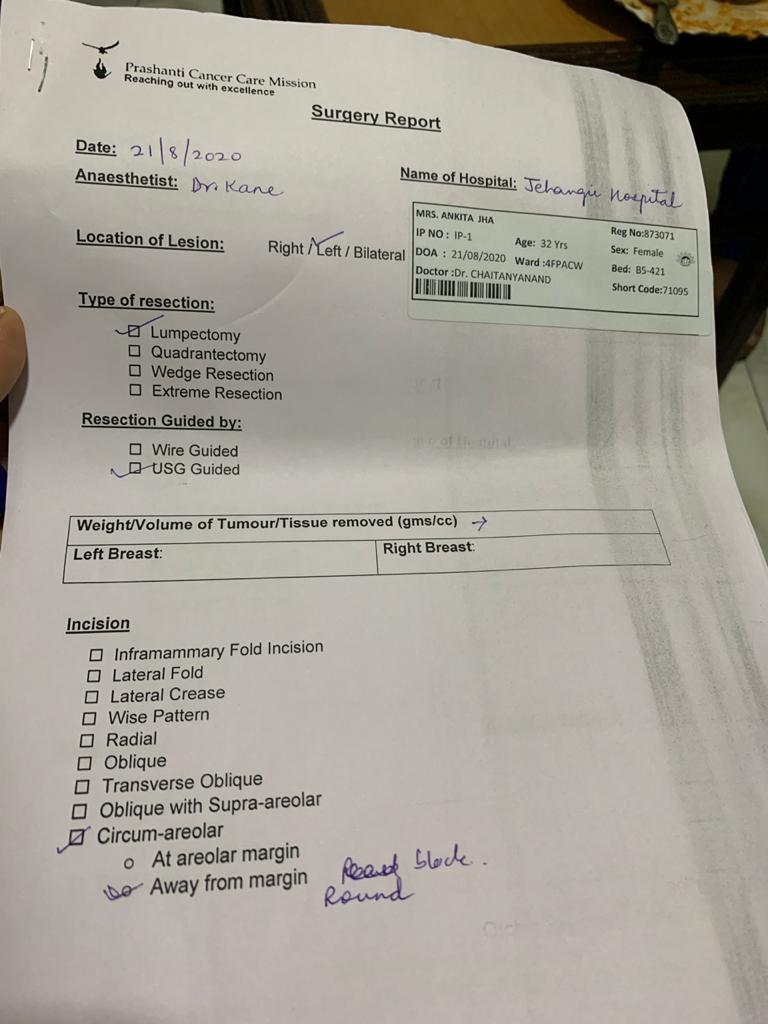 Prashanti Cancer Care Mission
Reaching out with excellence
Surgery Report
Date: 21/8/2020
Anaesthetist: Dr. Kane
Name of Hospital: Jehangir Hospital
MRS. ANKITA JHA
IP NO : IP-1
Age: 32 Yrs
DOA : 21/08/2020 Ward :4FPACW
Doctor :Dr. CHAITANYANAND
Reg No:873071
Sex: Female
Bed: B5-421
Short Code:71095
Location of Lesion: Right / Left / Bilateral
Type of resection:
Lumpectomy
Quadrantectomy
Wedge Resection
Extreme Resection
Resection Guided by:
Wire Guided
USG Guided
Weight/Volume of Tumour/Tissue removed (gms/cc) →
Left Breast: Right Breast:
Incision
Inframammary Fold Incision
Lateral Fold
Lateral Crease
Wise Pattern
Radial
Oblique
Transverse Oblique
Oblique with Supra-areolar
Circum-areolar
At areolar margin
Away from margin
block.
Round